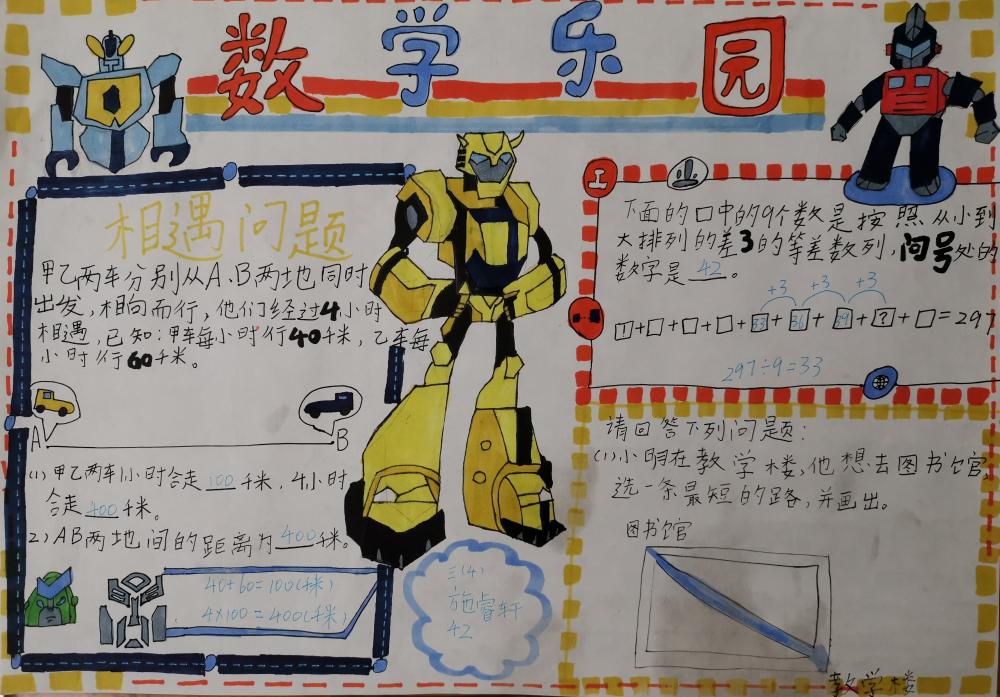 数学乐园
相遇问题
甲乙两车分别从A、B两地同时
出发,相向而行,他们经过4小时
相遇,已知:甲车每小时行40千米,乙车每
小时行60千米。
A B
(1)甲乙两车1小时合走100千米,4小时
合走400千米。
2)AB两地间的距离为400千米。
40+60=100(千米)
4×100=400(千米)
三(4)
施睿轩
42
下面的口中的9个数是按照从小到
大排列的差3的等差数列,问号处的
数字是42。
+3 +3 +3
□+□+□+□+33+36+39+?+□=297
297÷9=33
请回答下列问题:
(1)小明在教学楼,他想去图书馆,
选一条最短的路,并画出。
图书馆
教学楼